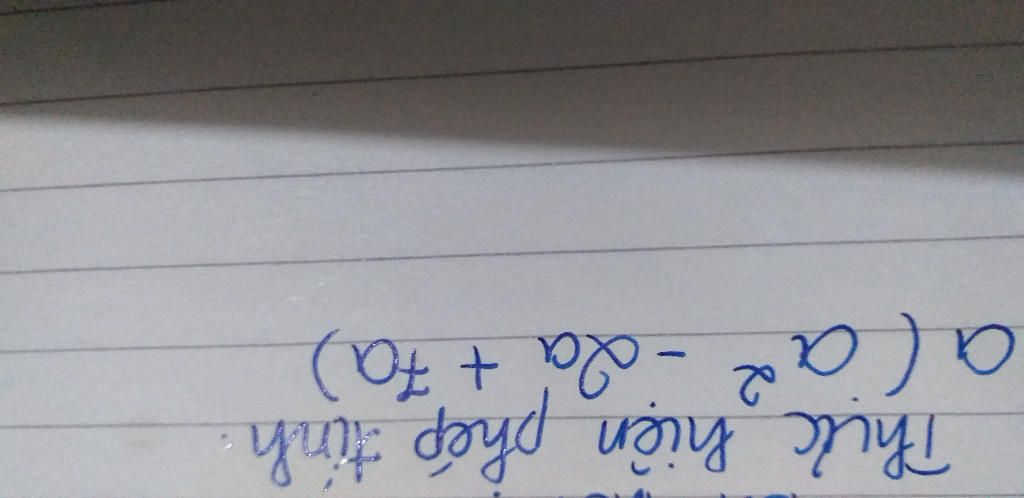 Thực hiện phép tính.
a ( a² - 2a + 7a )